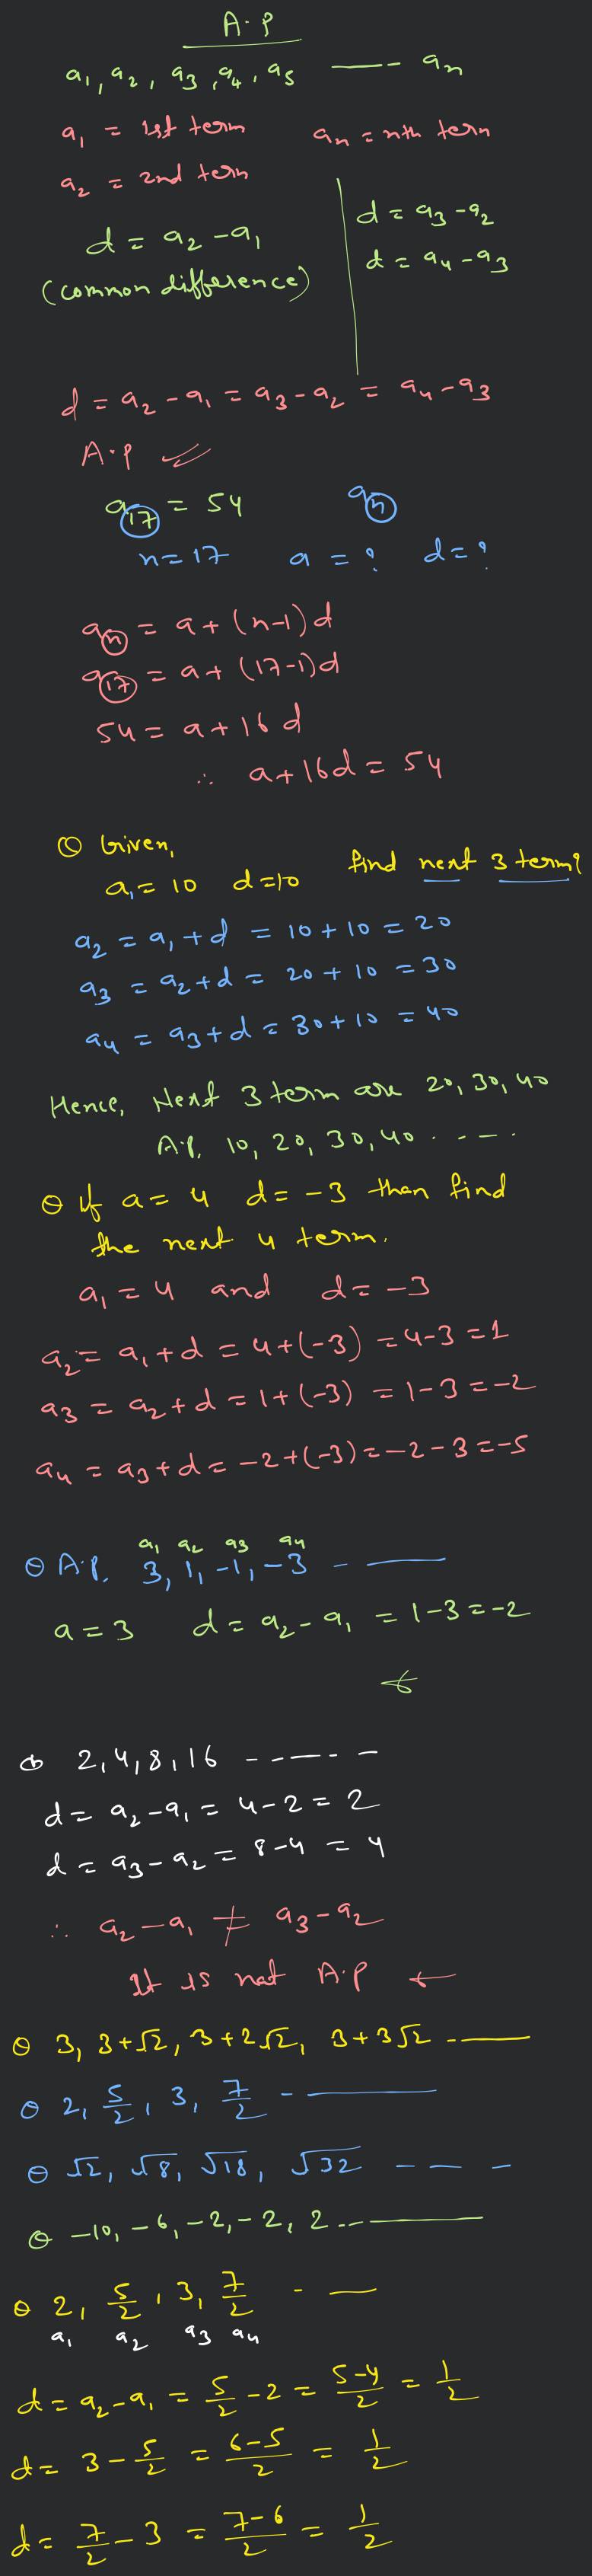 A.P
a₁, a₂, a₃, a₄, a₅ —— - aₙ
a₁ = 1st term aₙ = nth term
a₂ = 2nd term
d = a₂ - a₁
(common difference)
d = a₃ - a₂
d = a₄ - a₃
d = a₂ - a₁ = a₃ - a₂ = a₄ - a₃
A.P ✓
a₁₇ = 54 aₙ
n = 17 a = ? d = ?
aₙ = a + (n-1)d
a₁₇ = a + (17-1)d
54 = a + 16d
∴ a + 16d = 54
Given,
a₁ = 10 d = 10 find next 3 term?
a₂ = a₁ + d = 10 + 10 = 20
a₃ = a₂ + d = 20 + 10 = 30
a₄ = a₃ + d = 30 + 10 = 40
Hence, Next 3 term are 20, 30, 40
A.P. 10, 20, 30, 40 . . - - .
If a = 4 d = -3 then find
the next 4 term.
a₁ = 4 and d = -3
a₂ = a₁ + d = 4 + (-3) = 4 - 3 = 1
a₃ = a₂ + d = 1 + (-3) = 1 - 3 = -2
a₄ = a₃ + d = -2 + (-3) = -2 - 3 = -5
a₁ a₂ a₃ a₄
A.P. 3, 1, -1, -3 - ———
a = 3 d = a₂ - a₁ = 1 - 3 = -2
2, 4, 8, 16 - - - - - -
d = a₂ - a₁ = 4 - 2 = 2
d = a₃ - a₂ = 8 - 4 = 4
∴ a₂ - a₁ ≠ a₃ - a₂
It is not A.P ←
3, 3+√2, 3+2√2, 3+3√2 - ———
2, 5/2, 3, 7/2 - ———
√2, √8, √18, √32 - - -
-10, -6, -2, -2, 2 .. ———
2, 5/2, 3, 7/2 - —
a₁ a₂ a₃ a₄
d = a₂ - a₁ = 5/2 - 2 = 5-4/2 = 1/2
d = 3 - 5/2 = 6-5/2 = 1/2
d = 7/2 - 3 = 7-6/2 = 1/2